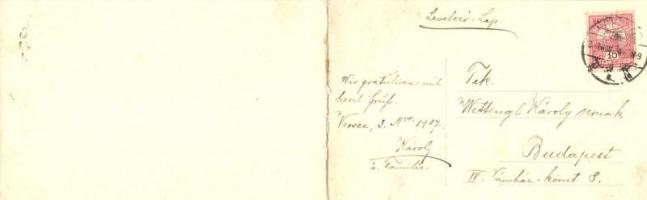 Levelező-Lap
Wir gratulieren mit
herzl. Gruß.
Versec, 3. Nov. 1907.
Károly
u. Familie.
Tek.
Wettengl Károly urnak
Budapest
IV. Vámház-körut 8.
10